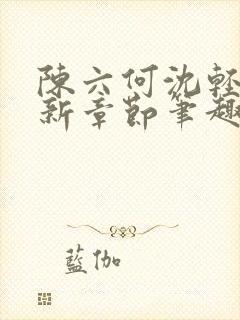 陳六何沈輕
新章節筆趣
藍伽